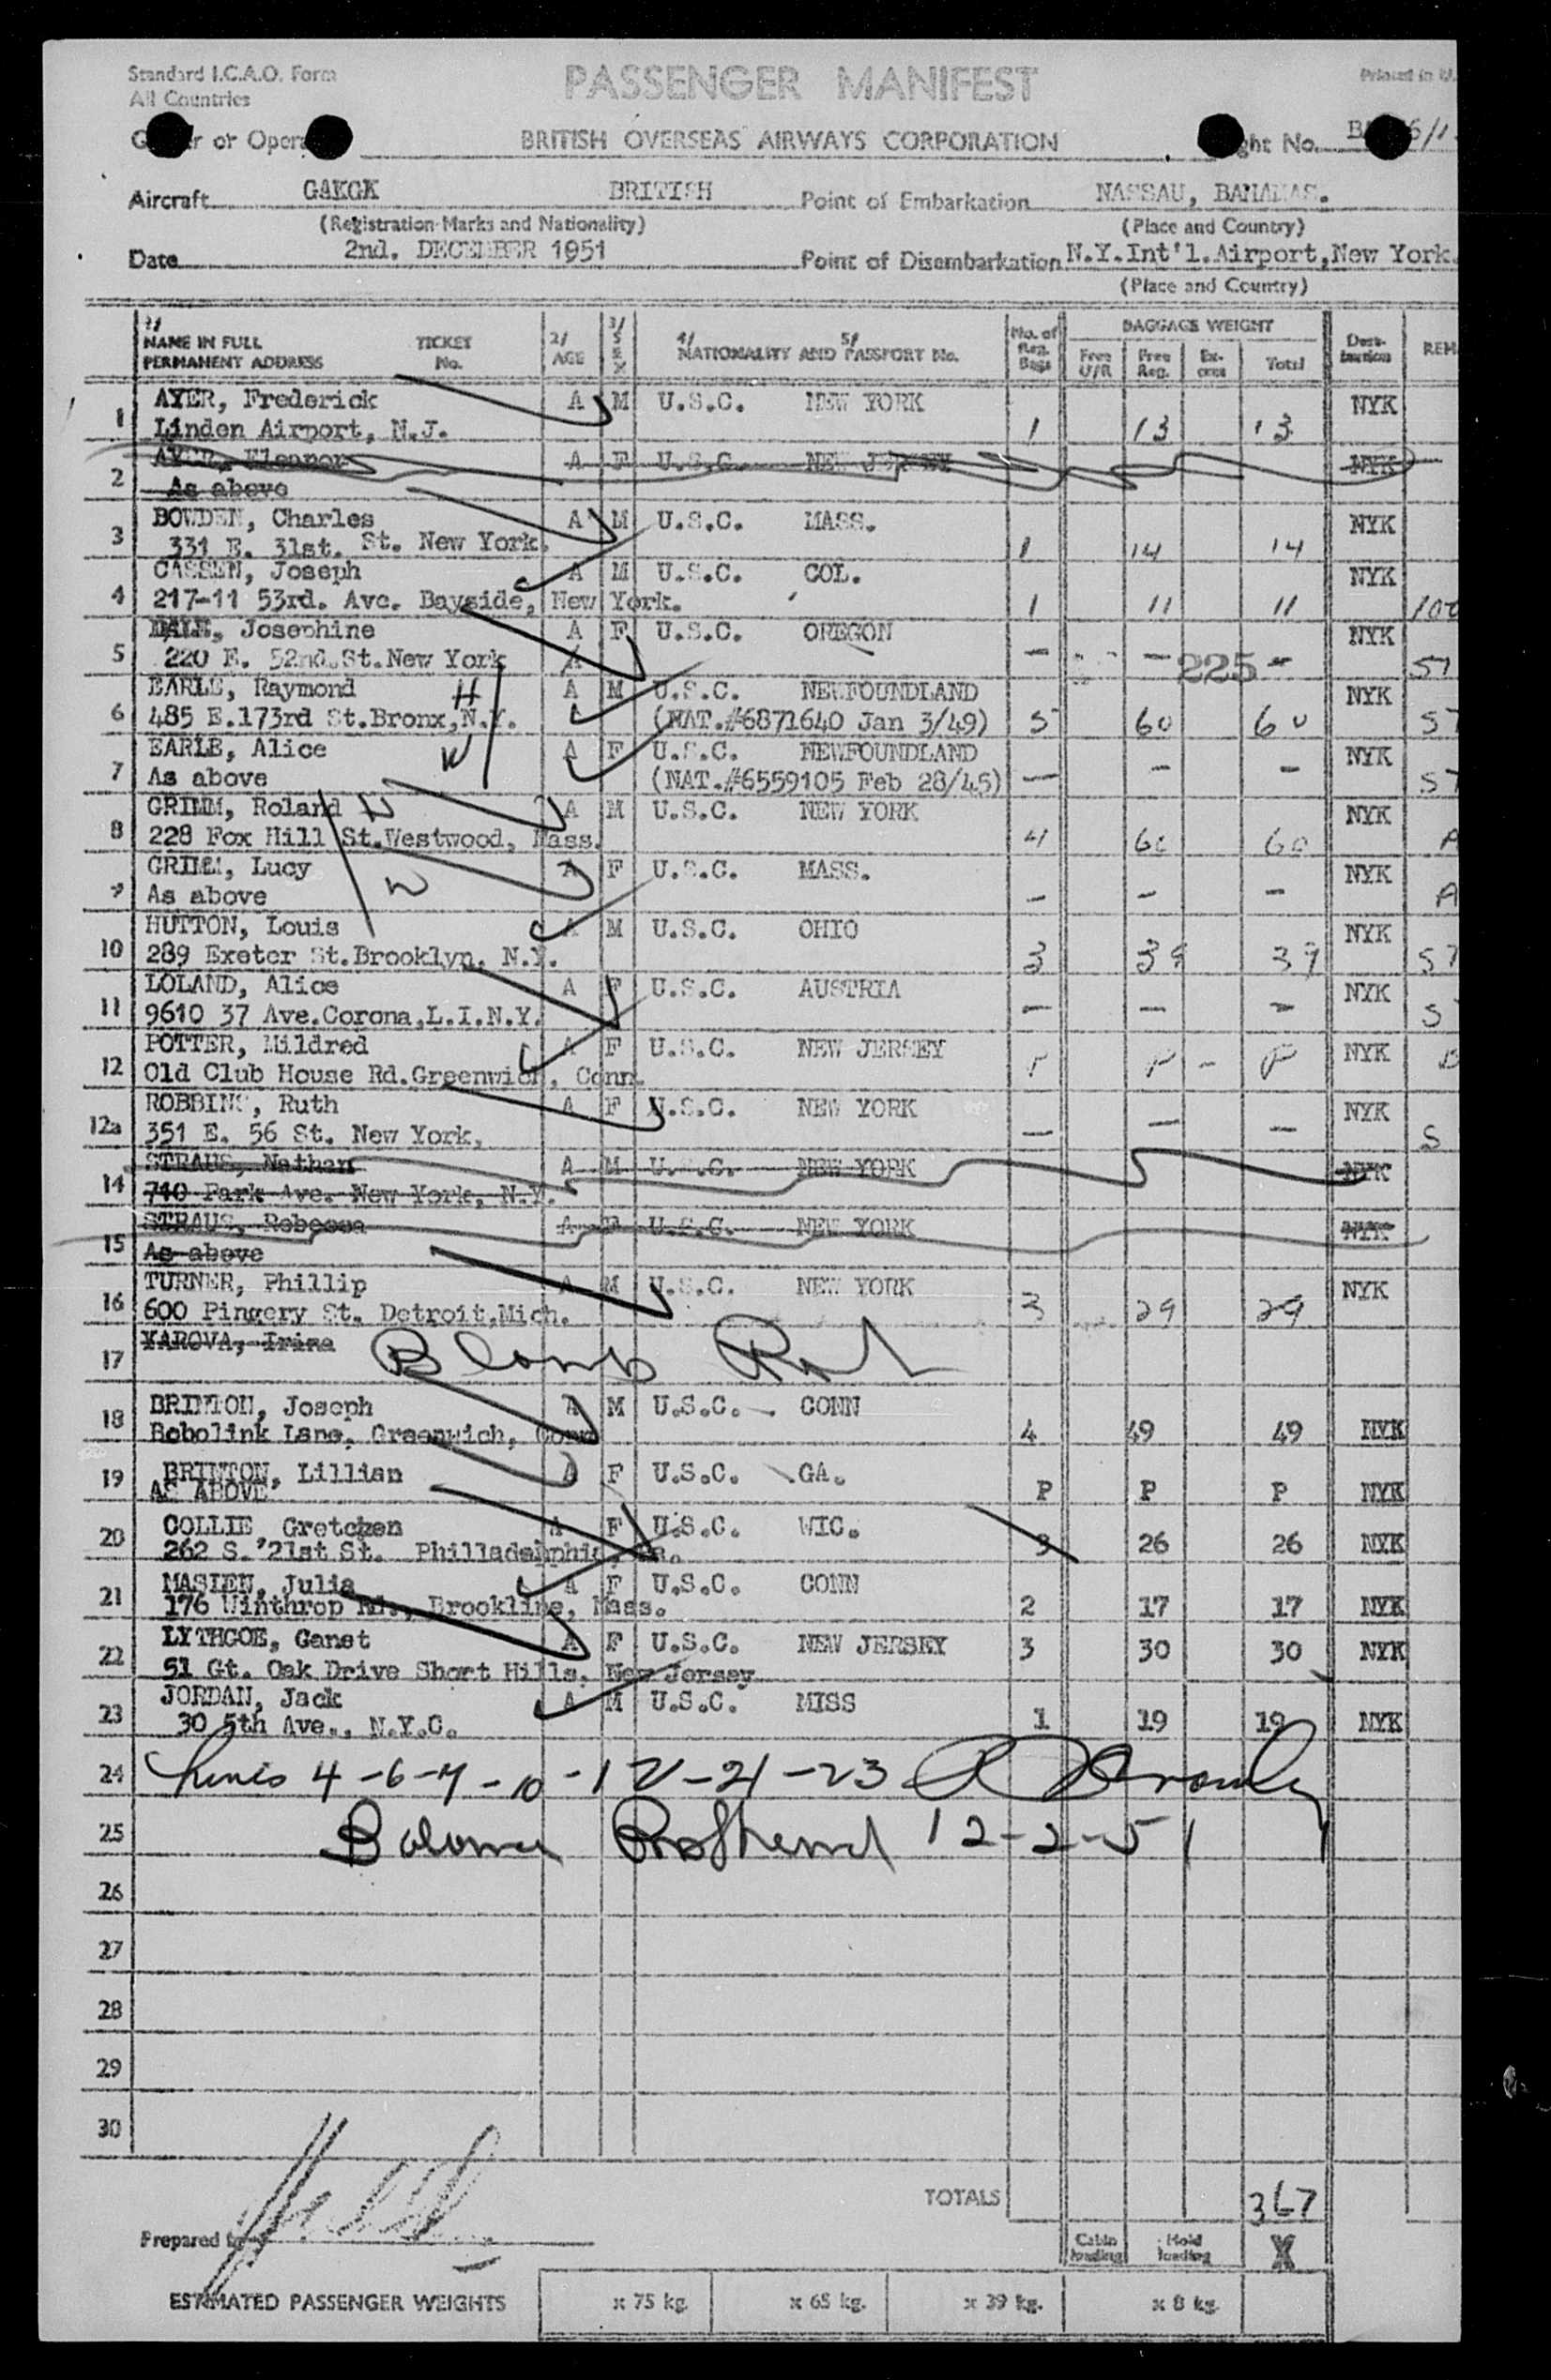 Standard I.C.A.O. Form
All Countries
PASSENGER MANIFEST
Printed in
or Oper
BRITISH OVERSEAS AIRWAYS CORPORATION
ght No.
Aircraft GAKGK BRITISH Point of Embarkation NASSAU, BAHAMAS.
(Registration Marks and Nationality) (Place and Country)
Date 2nd. DECEMBER 1951 Point of Disembarkation N.Y.Int'l.Airport,New York.
(Place and Country)
1/ NAME IN FULL TICKET 2/ 3/ SEX 4/ 5/ No. of BAGGAGE WEIGHT Dest-
PERMANENT ADDRESS No. AGE NATIONALITY AND PASSPORT No. Reg. Bags Free U/R Free Reg. Ex-cess Total ination REM
AYER, Frederick A M U.S.C. NEW YORK NYK
1 Linden Airport, N.J. 1 13 13
AYER, Eleanor A F U.S.C. NEW JERSEY NYK
2 As above
BOWDEN, Charles A M U.S.C. MASS. NYK
3 331 E. 31st. St. New York. 1 14 14
CASSEN, Joseph A M U.S.C. COL. NYK
4 217-11 53rd. Ave. Bayside, New York. 1 11 11 100
DALE, Josephine A F U.S.C. OREGON NYK
5 220 E. 52nd.St.New York A - - 225 - 57
EARLE, Raymond H A M U.S.C. NEWFOUNDLAND NYK
6 485 E.173rd St.Bronx,N.Y. (NAT.#6871640 Jan 3/49) 5 60 60 57
EARLE, Alice W A F U.S.C. NEWFOUNDLAND NYK
7 As above (NAT.#6559105 Feb 28/45) - - - 57
GRIMM, Roland H A M U.S.C. NEW YORK NYK
8 228 Fox Hill St.Westwood, Mass. 4 60 60 A
GRIMM, Lucy W A F U.S.C. MASS. NYK
9 As above - - - A
HUTTON, Louis A M U.S.C. OHIO NYK
10 289 Exeter St.Brooklyn. N.Y. 3 39 39 57
LOLAND, Alice A F U.S.C. AUSTRIA NYK
11 9610 37 Ave.Corona,L.I.N.Y. - - - S
POTTER, Mildred A F U.S.C. NEW JERSEY NYK
12 Old Club House Rd.Greenwich, Conn. P P - P
ROBBINS, Ruth A F U.S.C. NEW YORK NYK
12a 351 E. 56 St. New York, - - - S
STRAUS, Nathan A M U.S.C. NEW YORK NYK
14 740 Park Ave. New York, N.Y.
STRAUS, Rebecca A F U.S.C. NEW YORK NYK
15 As above
TURNER, Phillip A M U.S.C. NEW YORK NYK
16 600 Pingery St. Detroit,Mich. 3 29 29
YAROVA, Irina
17
BRINTON, Joseph A M U.S.C. CONN
18 Bobolink Lane, Greenwich, Conn 4 49 49 NYK
19 BRINTON, Lillian A F U.S.C. GA.
AS ABOVE P P P NYK
COLLIE, Gretchen A F U.S.C. WIC.
20 262 S. 21st St. Philladehphia, Pa. 3 26 26 NYK
MASIEN, Julia A F U.S.C. CONN
21 176 Winthrop Rd., Brookline, Mass. 2 17 17 NYK
LYTHGOE, Ganet A F U.S.C. NEW JERSEY 3 30 30 NYK
22 51 Gt. Oak Drive Short Hills. New Jersey
JORDAN, Jack A M U.S.C. MISS
23 30 5th Ave., N.Y.C. 1 19 19 NYK
24 4-6-7-10-12-21-23
25 12-2-51
26
27
28
29
30
TOTALS 367
Prepared by
Cabin loading Hold loading X
ESTIMATED PASSENGER WEIGHTS x 75 kg. x 65 kg. x 39 kg. x 8 kg.